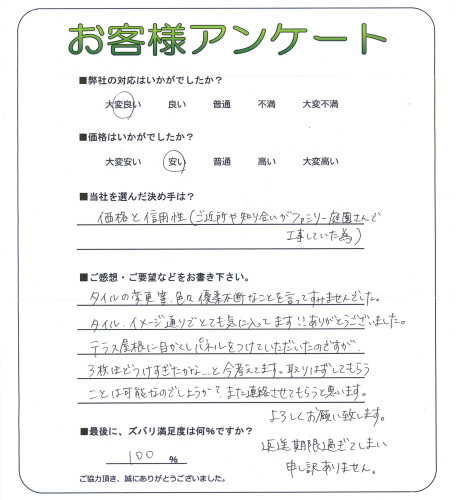 お客様アンケート
■弊社の対応はいかがでしたか？
大変良い 良い 普通 不満 大変不満
■価格はいかがでしたか？
大変安い 安い 普通 高い 大変高い
■当社を選んだ決め手は？
価格と信用性(ご近所や知り合いがファミリー庭園さんで
工事していた為)
■ご感想・ご要望などをお書き下さい。
タイルの変更等、色々優柔不断なことを言ってすみませんでした。
タイル、イメージ通りでとても気に入ってます!!ありがとうございました。
テラス屋根に目かくしパネルをつけていただいたのですが、
3枚はどうつけすぎたかな…と今考えてます。取りはずしてもらう
ことは可能なのでしょうか？また連絡させてもらうと思います。
よろしくお願い致します。
■最後に、ズバリ満足度は何％ですか？
100 ％
返送期限過ぎてしまい
申し訳ありません。
ご協力頂き、誠にありがとうございました。